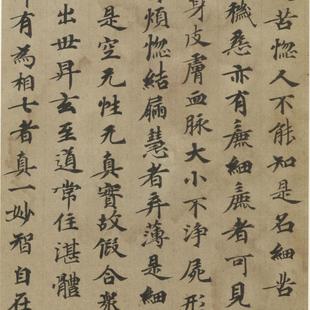 苦惱人不能知是名細苦
穢惡亦有麁細麁者可見
身皮膚血脉大小不淨屍形
煩惱結漏慧者弃薄是細
是空无性无真實故假合眾
出世昇玄至道常住湛體
有為相七者真一妙智自在